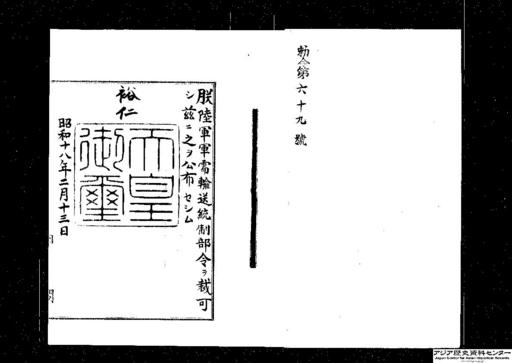 勅令第六十九號
朕陸軍軍需輸送統制部令ヲ裁可
シ茲ニ之ヲ公布セシム
裕仁
天皇
御璽
昭和十八年二月十三日
アジア歴史資料センター
Japan Center for Asian Historical Records